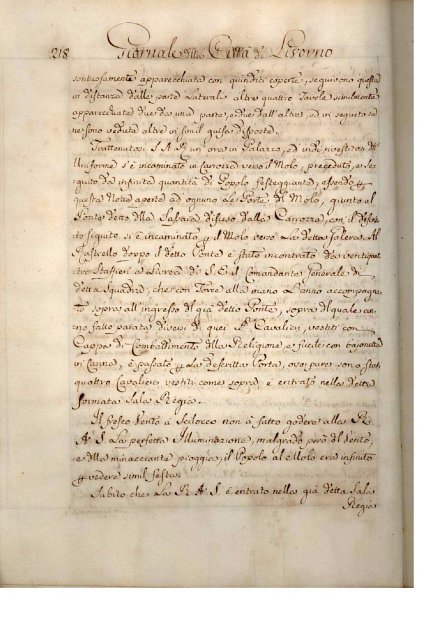 218 Giornale della Città di Livorno
tuosamente apparecchiata con quindici coperte, seguivono questa
in distanza dalle parte Laterali altre quattro Tavole similmente
apparecchiate due da una parte, e due dall'altra, ed in seguito se
ne sono vedute altre in simil guisa disposte.
Trattenutasi S. A. R. un'ora in Palazzo, ed indi rivestitasi dell'
Uniforme s'è incaminato in Carrozza verso il Molo, preceduto, e se-
guito da infinita quantità di Popolo festeggiante, essendo p
questa Notte aperte ad ognuno Le Porte di Molo, giunto al
Ponte detto della Sassaia disceso dalla Carrozza, con il descrit-
to seguito si è incaminato p il Molo verso La detta Galera. Al
Rastrello doppo il detto Ponte è stato incontrato da ventiquat-
tro Staffieri a Livrea di S. E. il Comandante Generale di
detta Squadra, che con Torce alla mano L'anno accompagna-
to sopra all'ingresso del già detto Ponte, sopra del quale an-
no fatto parata diversi di quei Cavalieri, vestiti con
Cappa di Combattimento della Religione, e fucile con bajonetta
in Canna, è passato p La descritta Porta, ove pure sono stati
quattro Cavalieri vestiti come sopra, è entrato nella detta
formata Sala Regia.
Il fresco Vento di Scilocco non à fatto godere alla R.
A. S. La perfetta Illuminazione, malgrado però del Vento,
e della minacciante pioggia, il Popolo al Molo era infinito
p vedere simil festa.
Subito che La R. A. S. è entrato nella già detta Sala
Regia